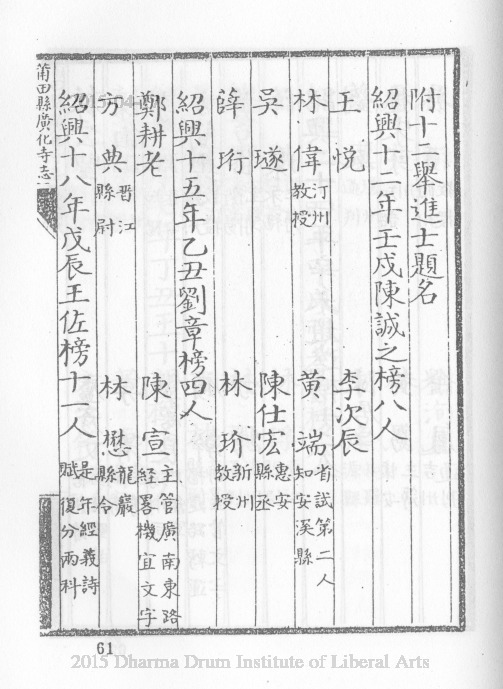 附十二舉進士題名
紹興十二年壬戌陳誠之榜八人
王悅 李次辰
林偉汀州教授 黃端省試第二人知安溪縣
吳璲 陳仕宏惠安縣丞
薛珩 林玠新州教授
紹興十五年乙丑劉章榜四人
鄭耕老 陳宣主管廣南東路經畧機宜文字
方典晋江縣尉 林懋龍巖縣令
紹興十八年戊辰王佐榜十一人是年經義詩賦復分兩科
莆田縣廣化寺志
61
2015 Dharma Drum Institute of Liberal Arts